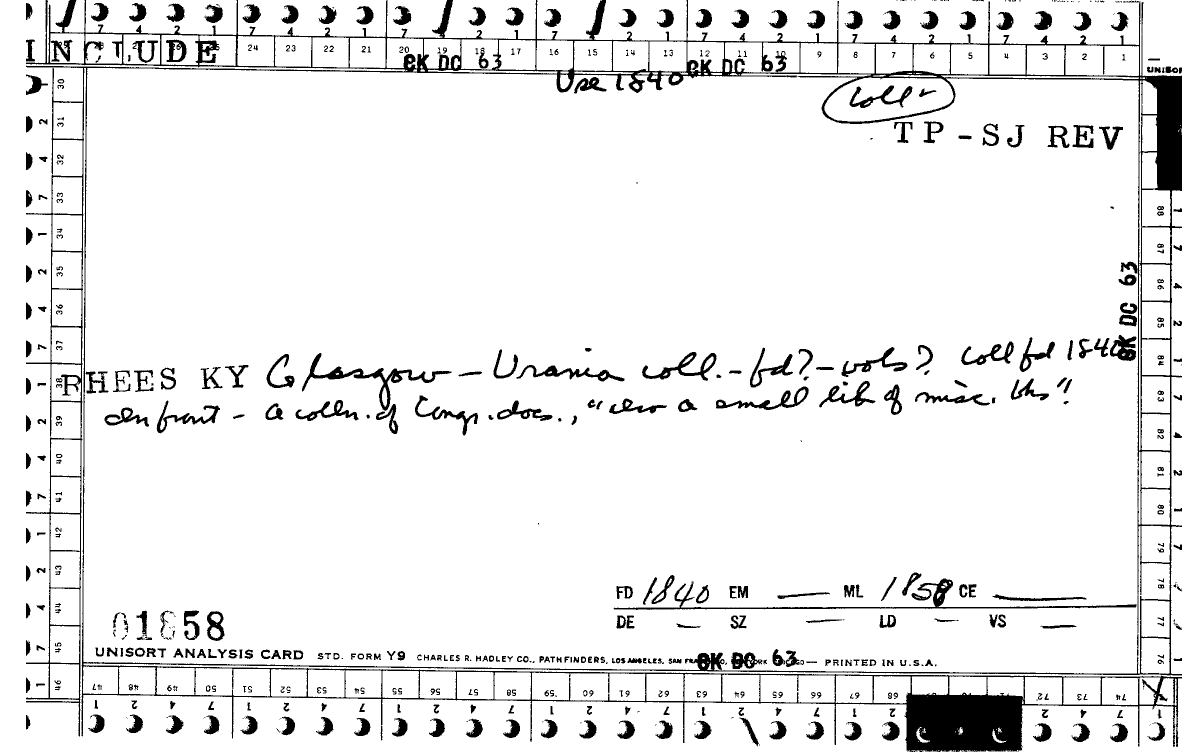 7 4 2 1 7 4 2 1 7 2 1 2 1 7 4 2 1 7 4 2 1
INCLUDE 24 23 22 21 20 19 18 17 16 15 14 13 12 11 10 9 8 7 6 5 4 3 2 1
OK DC 63 OK DC 63
UNISOR
Use 1840
coll
TP-SJ REV
30
2 31
4 32
7 33
1 34
2 35
4 36
7 37
1 38
2 39
4 40
7 41
1 42
2 43
4 44
7 45
1 46
88
87
86
85
84
83
82
81
80
79
78
77
76
OK DC 63
RHEES KY Glasgow – Urania coll. – fd? – vols? Coll fd 1840
in front – a colln. of Congr. docs., "also a small lib of misc. bks"!
FD 1840 EM — ML 1858 CE —
DE — SZ — LD — VS —
01858
UNISORT ANALYSIS CARD STD. FORM Y9 CHARLES R. HADLEY CO., PATHFINDERS, LOS ANGELES, SAN — PRINTED IN U.S.A.
OK DC 63
47 48 49 50 51 52 53 54 55 56 57 58 59 60 61 62 63 64 65 66 67 68 72 73 74
4 2 1 7 4 2 1 7 4 2 1 7 4 2 1 7 4 2 1 7 4 2 1